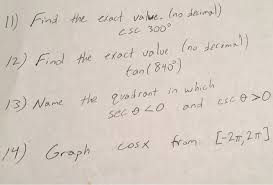 11) Find the exact value. (no decimal)
csc 300°
12) Find the exact value (no decimal)
tan(840°)
13) Name the quadrant in which
sec θ <0 and csc θ >0
14) Graph cosx from [-2π, 2π]